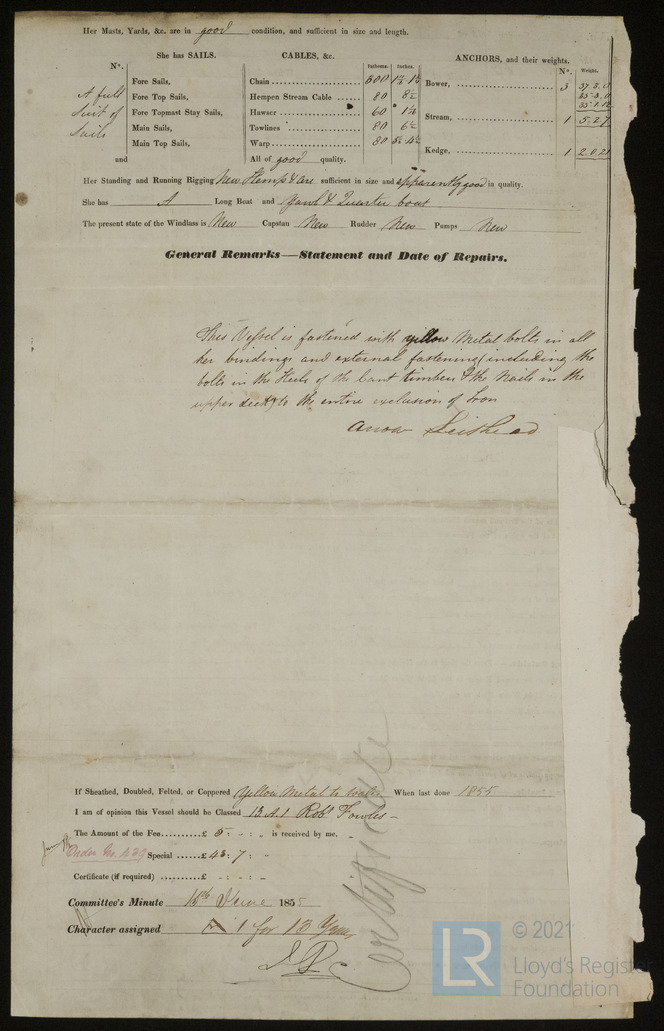 Her Masts, Yards, &c. are in good condition, and sufficient in size and length.
She has SAILS.
CABLES, &c.
ANCHORS, and their weights.
Nº.
Fathoms.
Inches.
Nº.
Weight.
A full
Suit of
Sails
Fore Sails,
Fore Top Sails,
Fore Topmast Stay Sails,
Main Sails,
Main Top Sails,
and
Chain .................... 300
Hempen Stream Cable ...... 80 8½
Hawser .................... 60
Towlines .................... 80 6½
Warp .................... 80
All of good quality.
Bower, .................... 3 37.3.0
Stream, .................... 1 5.2.7
Kedge, .................... 1
Her Standing and Running Rigging New Hemp & are sufficient in size and apparently good in quality.
She has A Long Boat and Yawl & Quarter boat
The present state of the Windlass is New Capstan New Rudder New Pumps New
General Remarks—Statement and Date of Repairs.
This Vessel is fastened with yellow Metal bolts in all
her bindings and external fastening (including the
bolts in the Heels of the Cant timbers & the Nails in the
upper deck) to the entire exclusion of Iron
If Sheathed, Doubled, Felted, or Coppered Yellow Metal to When last done 1855
I am of opinion this Vessel should be Classed 13 A.1 Robt Fowles
The Amount of the Fee..........£ 5 : - : „ is received by me,
Order No. Special ......£ 43 : 7 : „
Certificate (if required) ..........£ - : - : „
Certificate
Committee's Minute 15th June 1855
Character assigned A 1 for 13 Years
LR © 2021
Lloyd's Register
Foundation